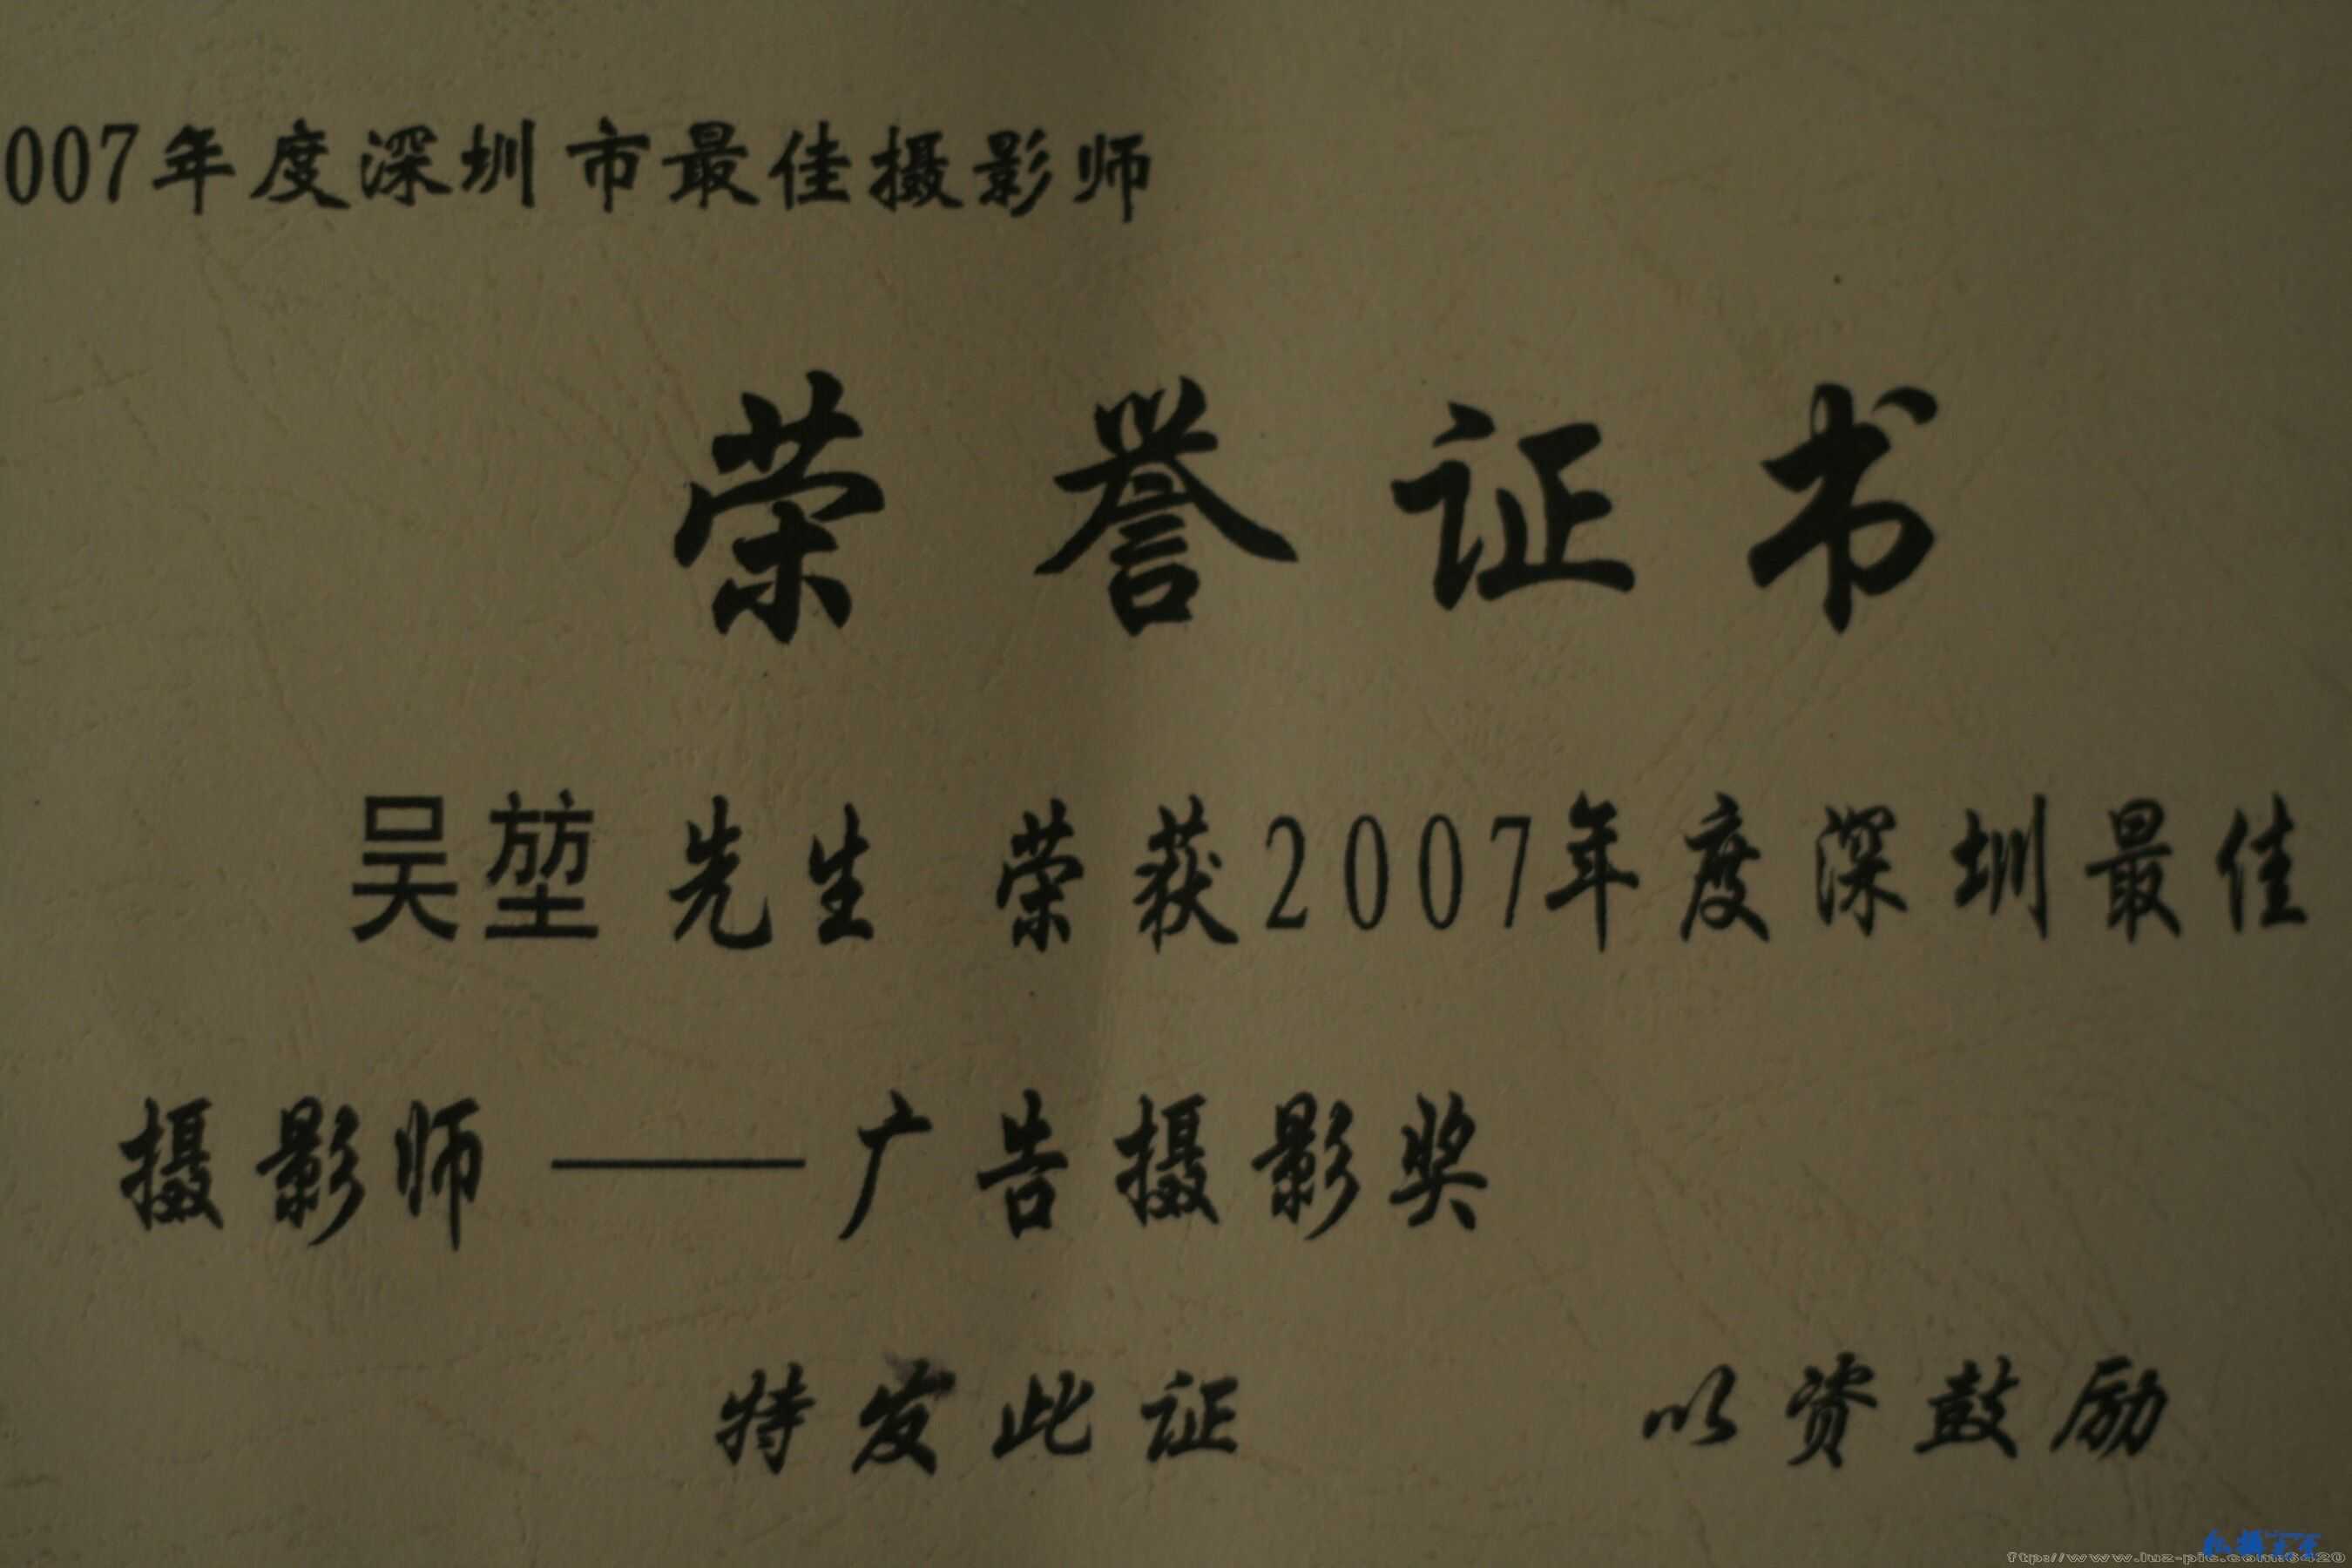 007年度深圳市最佳摄影师
荣誉证书
吴堃 先生 荣获2007年度深圳最佳
摄影师——广告摄影奖
特发此证 以资鼓励